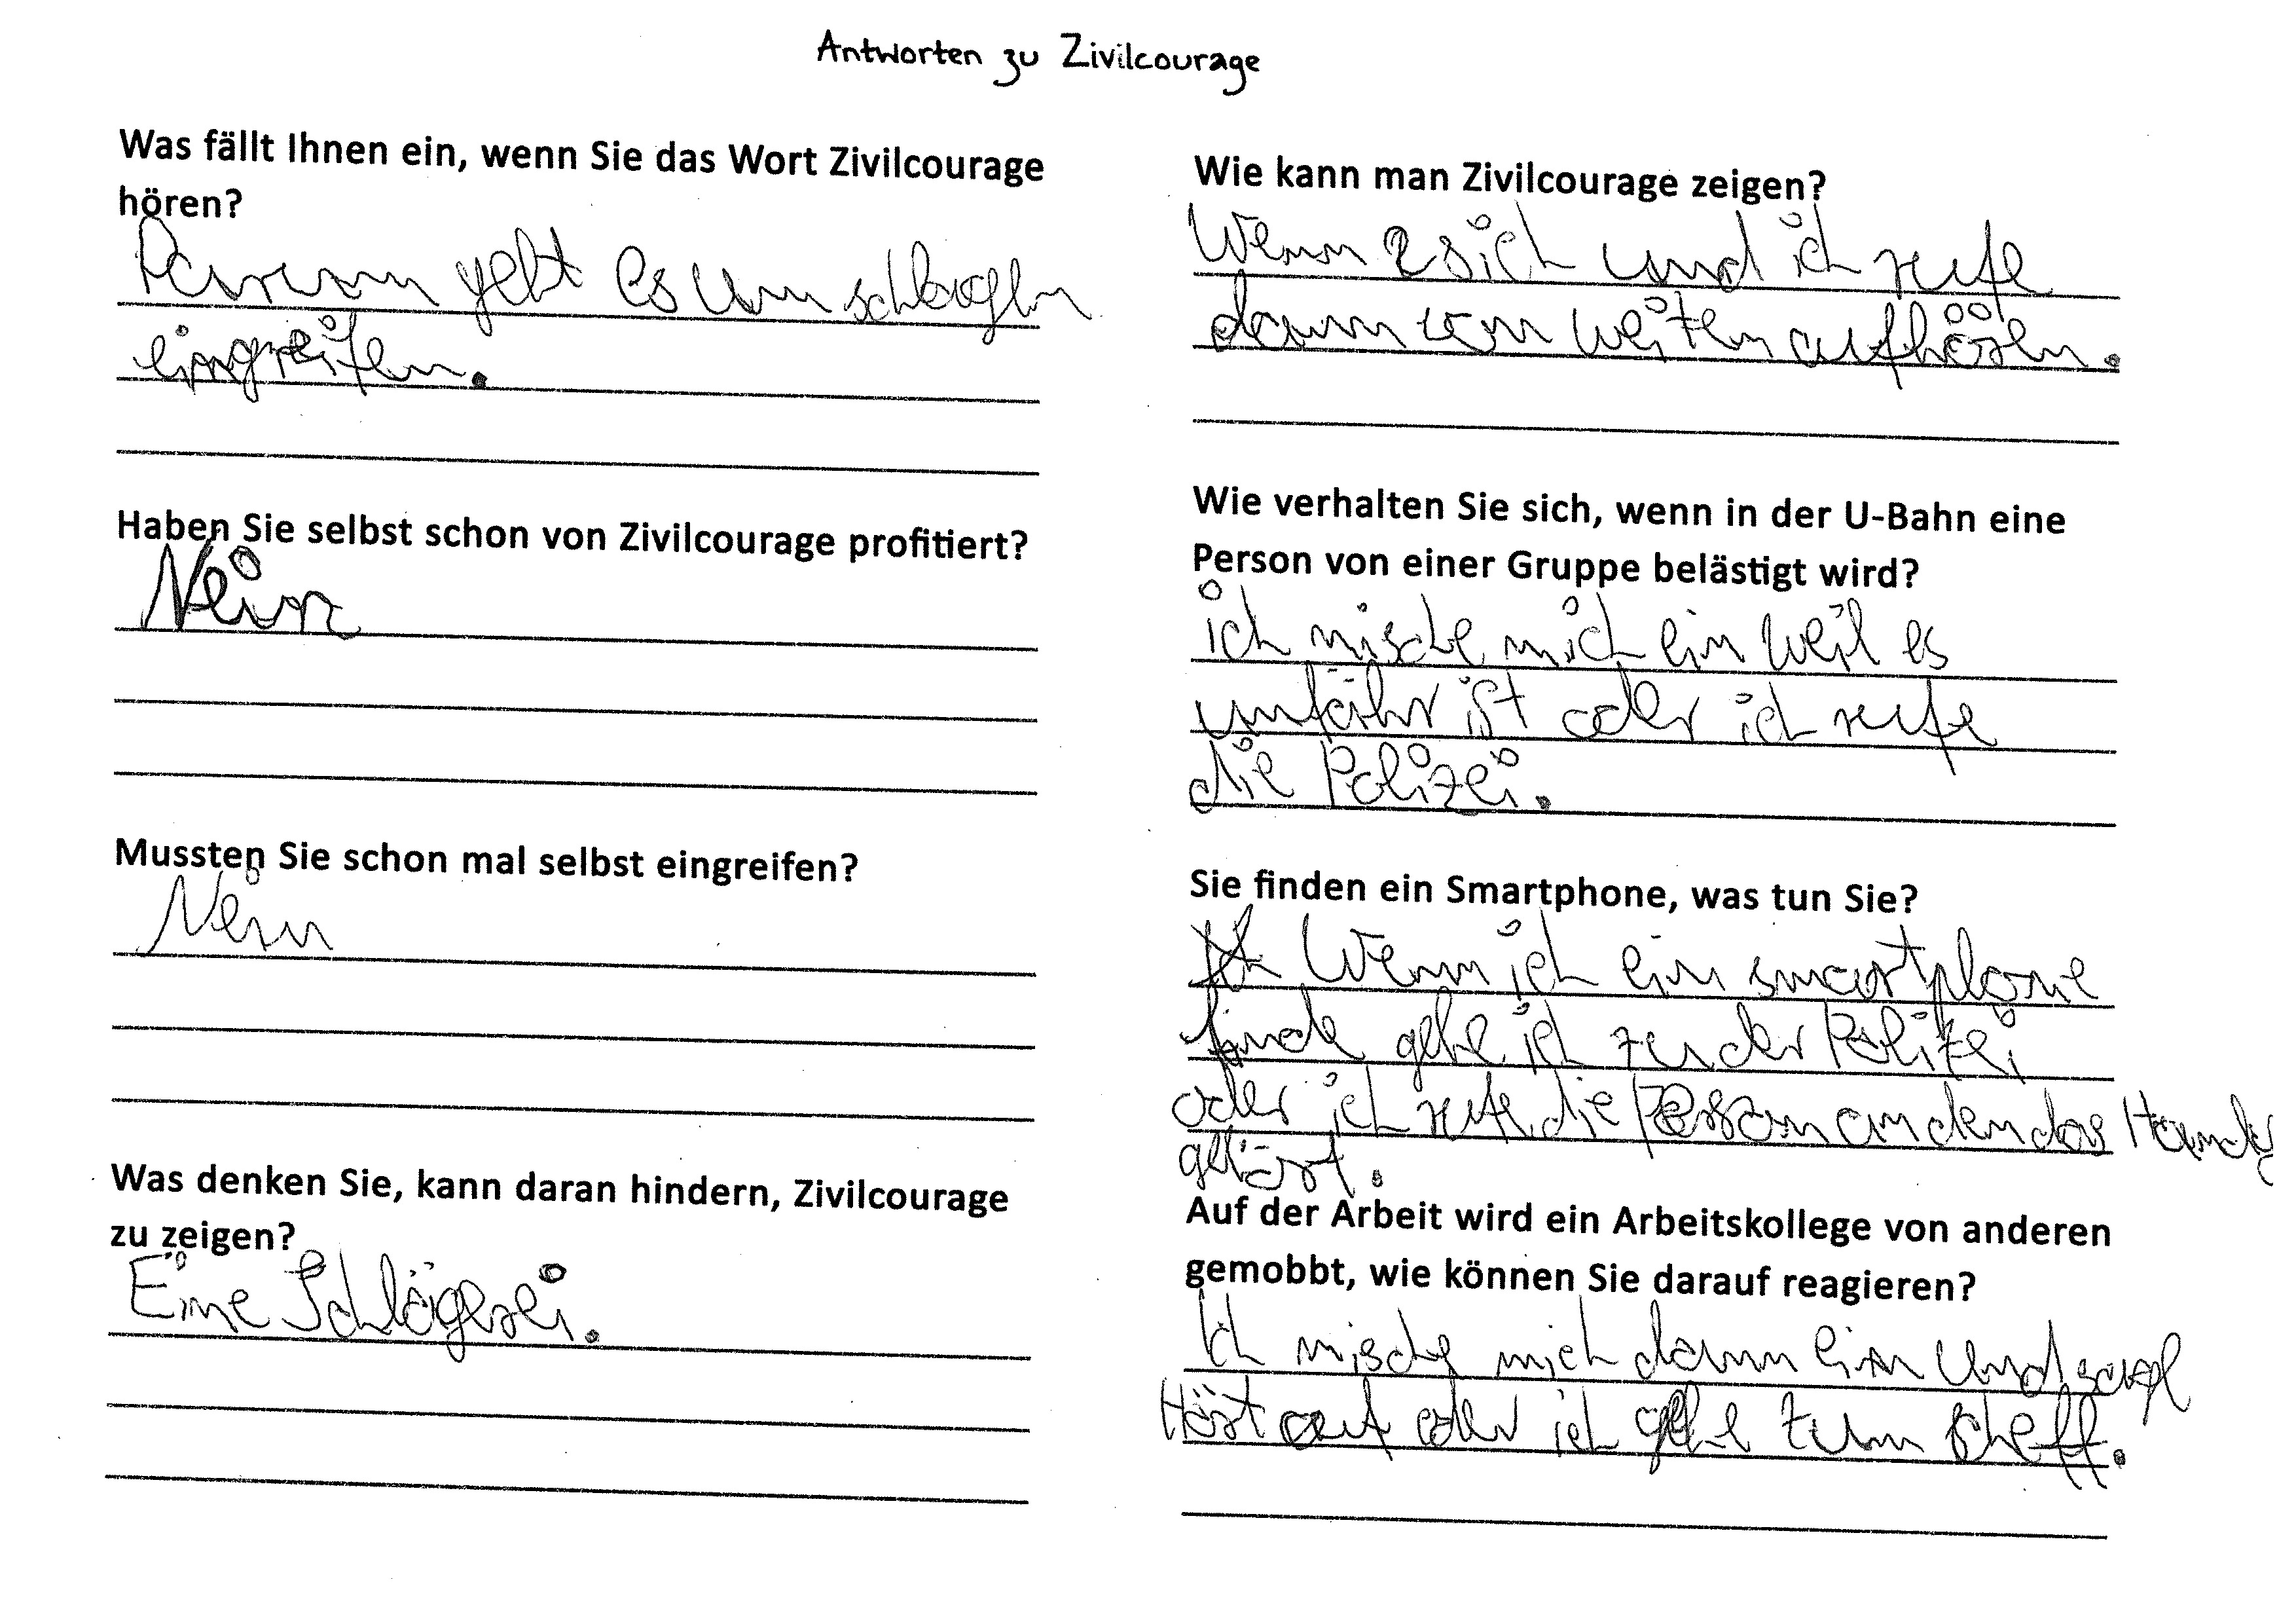 Antworten zu Zivilcourage
Was fällt Ihnen ein, wenn Sie das Wort Zivilcourage
hören?
geht es um schlagen
eingreifen.
Haben Sie selbst schon von Zivilcourage profitiert?
Nein
Mussten Sie schon mal selbst eingreifen?
Nein
Was denken Sie, kann daran hindern, Zivilcourage
zu zeigen?
Eine Schlägerei.
Wie kann man Zivilcourage zeigen?
Wenn 2 sich und ich rufe
dann von weiten aufhören.
Wie verhalten Sie sich, wenn in der U-Bahn eine
Person von einer Gruppe belästigt wird?
ich mische mich ein weil es
unfähr ist oder ich rufe
die Polizei.
Sie finden ein Smartphone, was tun Sie?
Wenn ich ein smartphone
finde gehe ich zu der Polizei
oder ich rufe die Person an den das Handy
gehört.
Auf der Arbeit wird ein Arbeitskollege von anderen
gemobbt, wie können Sie darauf reagieren?
Ich mische mich dann ein und sage
Hört auf oder ich gehe zum scheff.